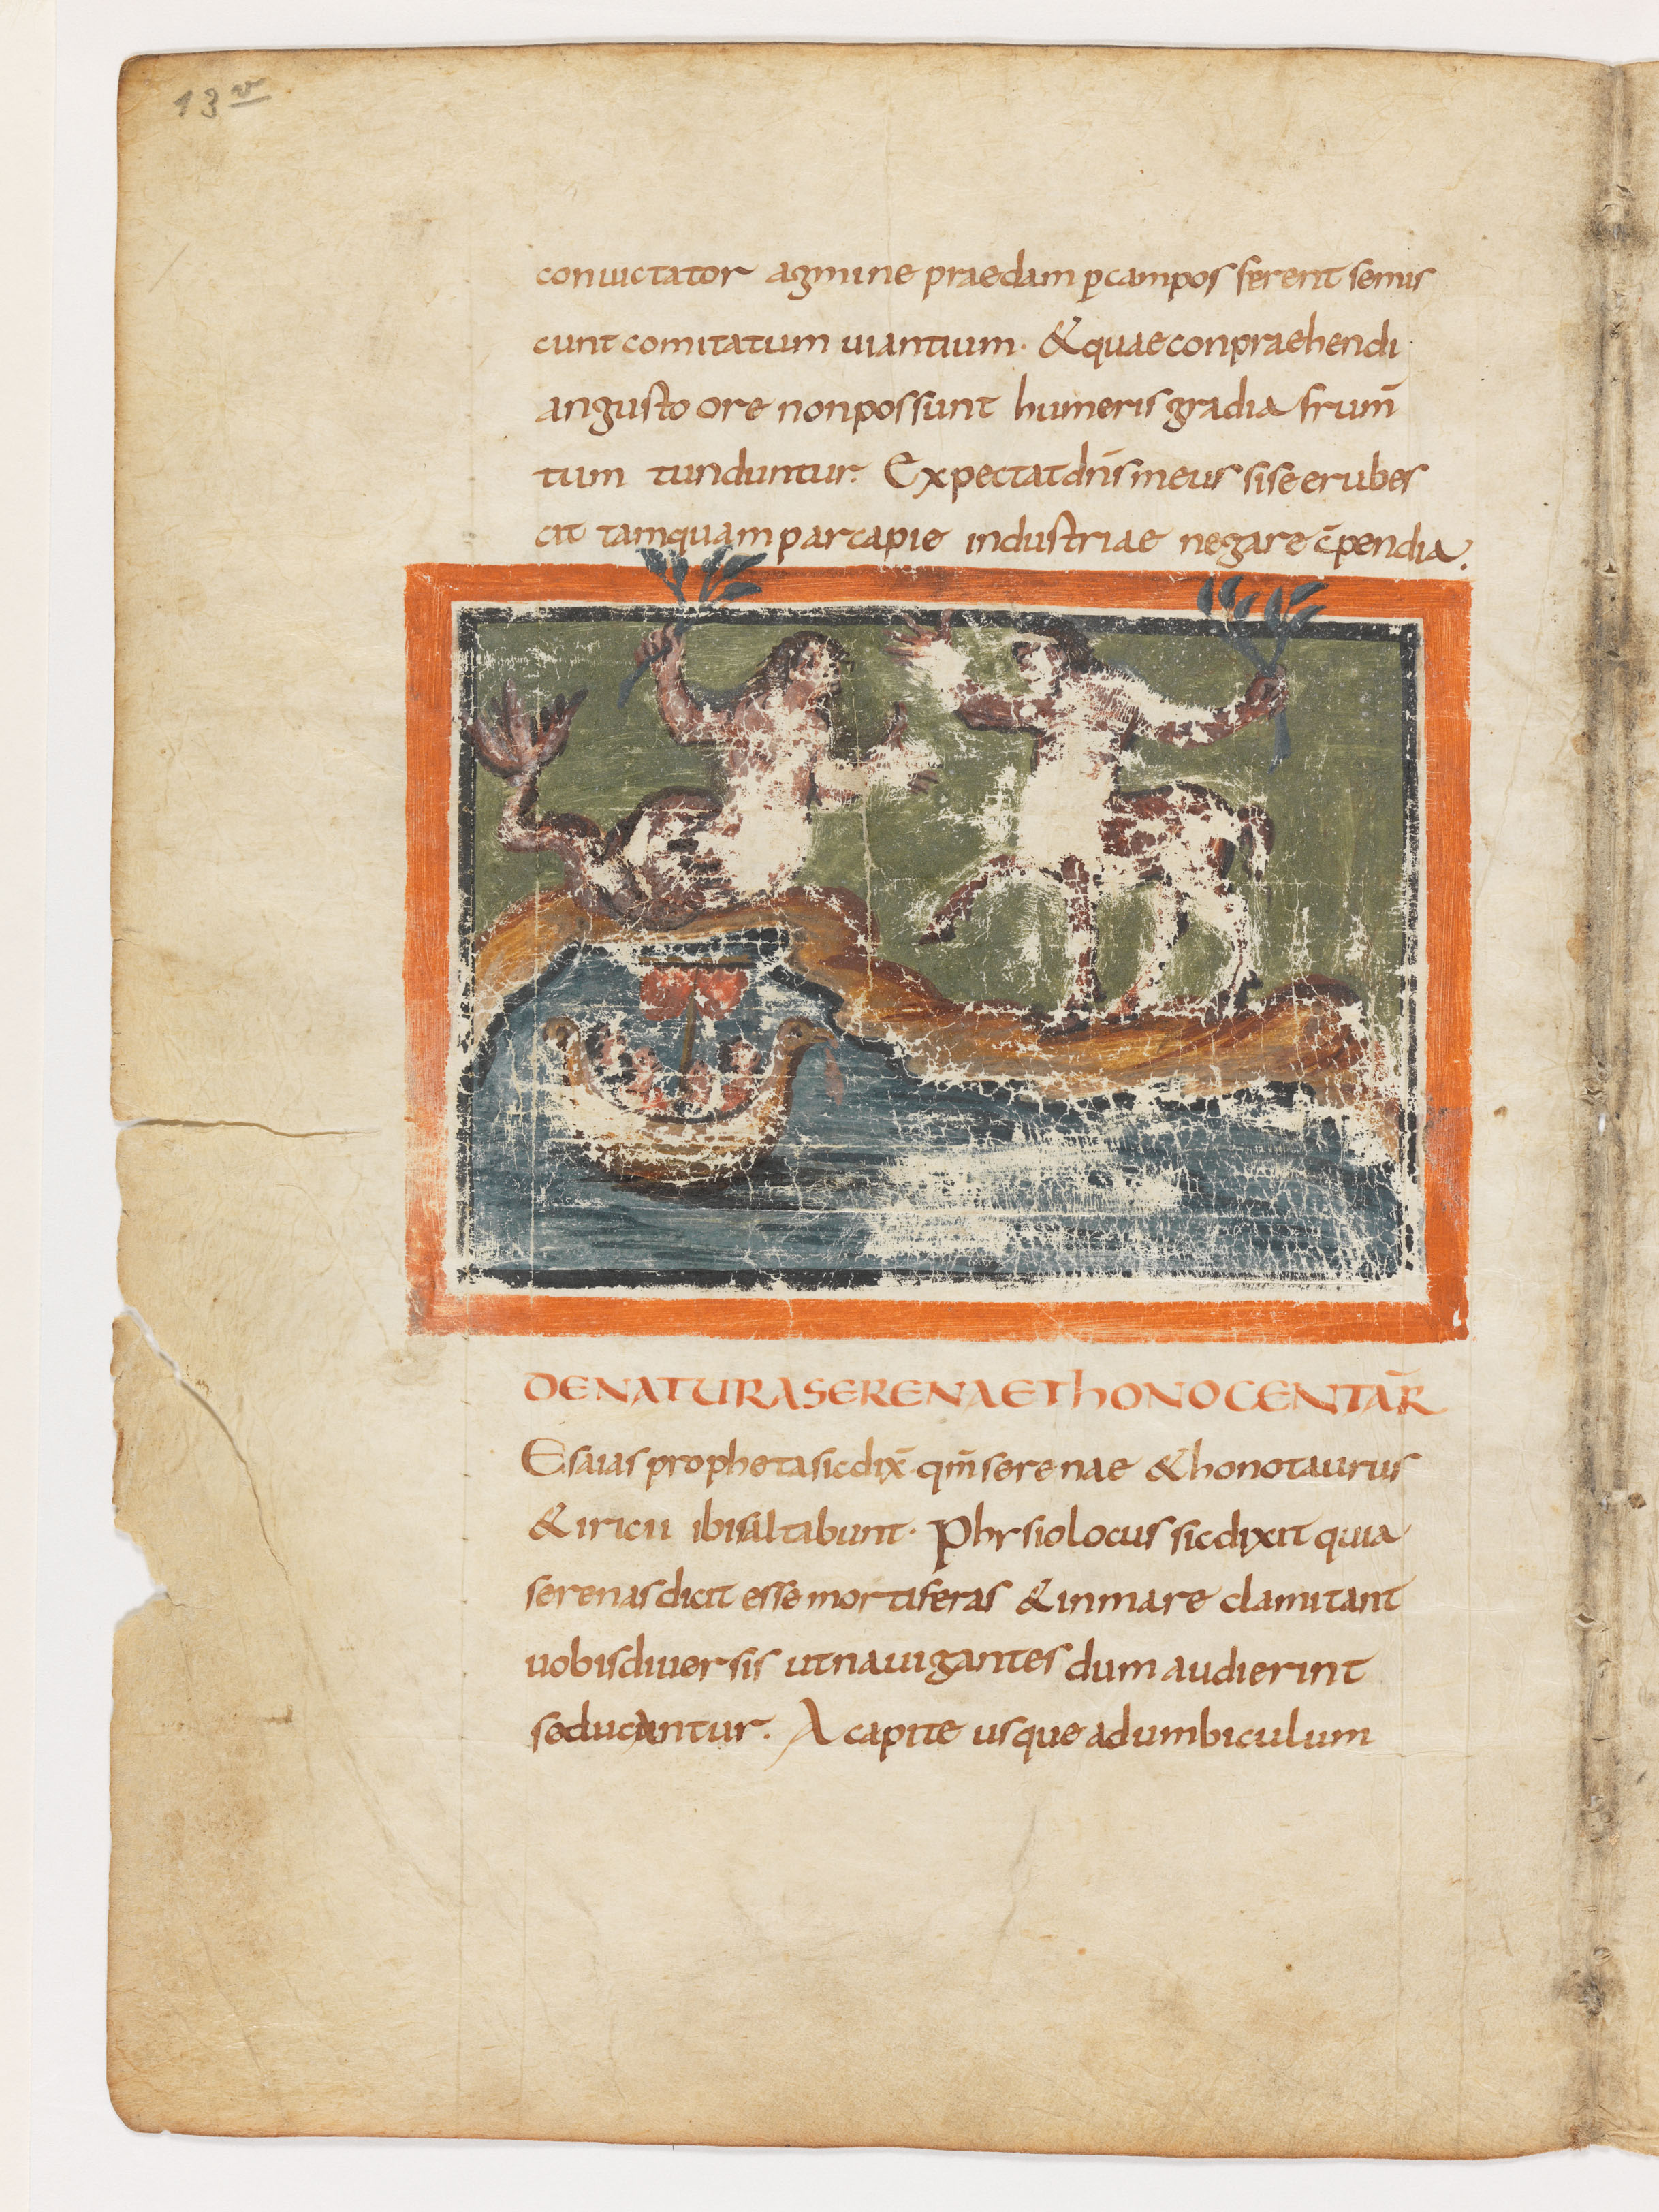 13v
conuictator agmine praedam ꝑcampos ferent semis
cunt comitatum uiantium· &quae conpraehendi
angusto ore non possunt humeris gradia frum̄
tum tunduntur. Expectat dn̄s meus si se erubes
cit tamquam partapie industriae negare c̄pendia.
DE NATURA SERENAE ET hONOCENTAR̄
Esaias propheta sic dix̄ qm̄ serenae & honotaurus
& iricii ibi saltabunt· Phisiolocus sic dixit quia
serenas dicit esse mortiferas & in mare clamitant
uobis diuersis ut nauigantes dum audierint
seducantur. A capite usque ad umbiculum